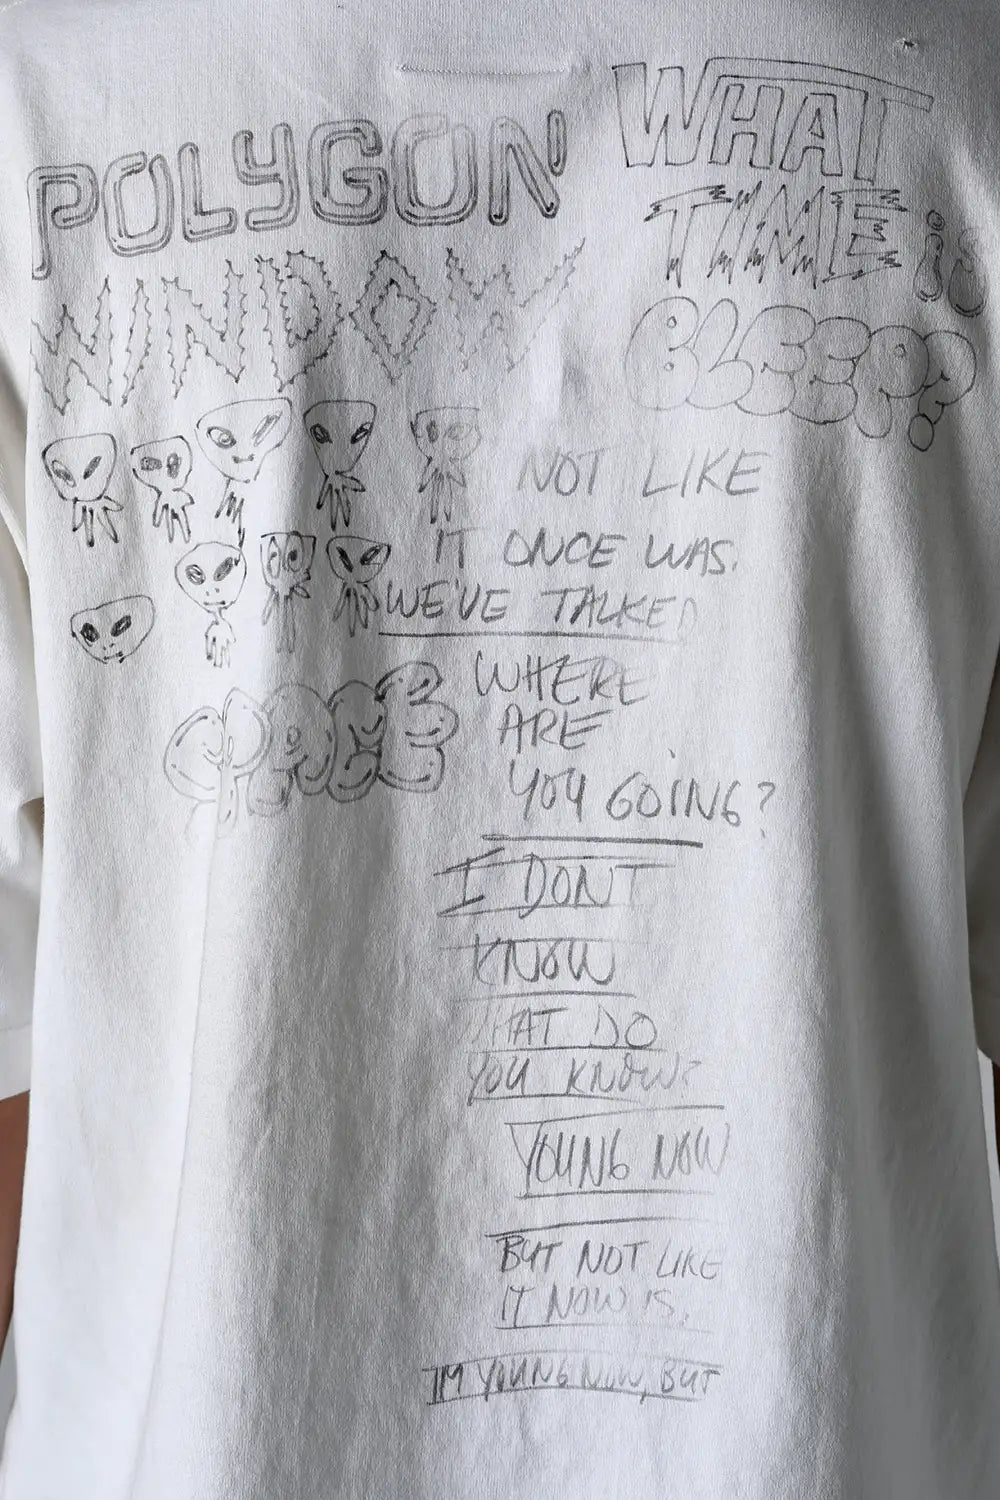 POLYGON
WINDOW
WHAT
TIME is
BLEEP?
NOT LIKE
IT ONCE WAS.
WE'VE TALKED
WHERE
ARE
YOU GOING?
I DONT
KNOW
WHAT DO
YOU KNOW?
YOUNG NOW
BUT NOT LIKE
IT NOW IS.
IM YOUNG NOW, BUT